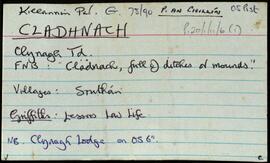 Kieranin Par. G. 75/90 P. AN CHILLÍN OS
CLADHNACH P.20/1/1/6 (1)
Clynagh Td.
FNB: "Cladnach, full of ditches or mounds."
Villages: Sruthán
Griffith: Lessors Law Life
NB. Clynagh Lodge on OS 6"